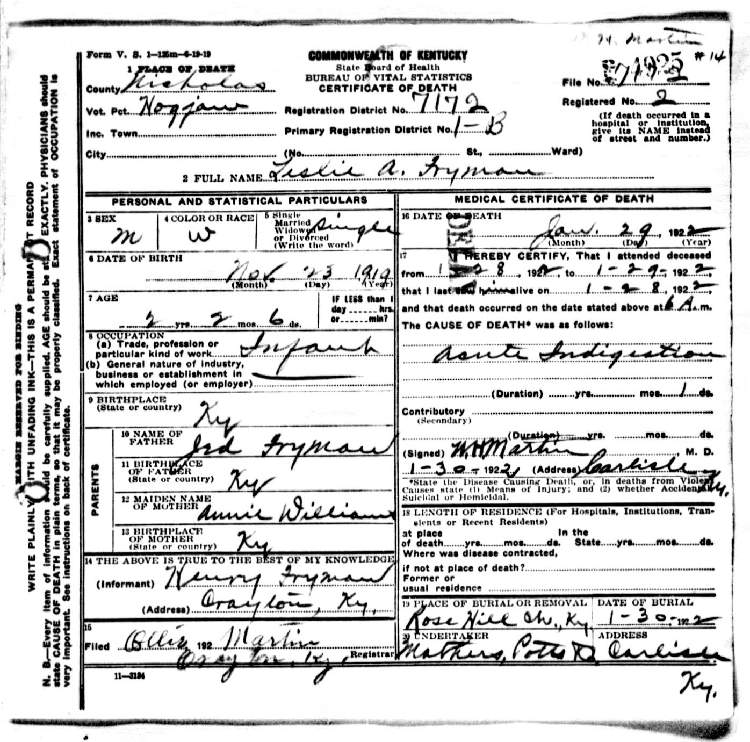 W. H. Martin
Form V. S. 1—125m—6-19-19
COMMONWEALTH OF KENTUCKY
State Board of Health
BUREAU OF VITAL STATISTICS
CERTIFICATE OF DEATH
1925 #14
File No.
Registered No. 2
(If death occurred in a hospital or institution, give its NAME instead of street and number.)
1 PLACE OF DEATH
County Nicholas
Vot. Pct. Hogjaw
Registration District No. 7172
Inc. Town
Primary Registration District No. 1-B
City (No. St., Ward)
2 FULL NAME Leslie A. Fryman
PERSONAL AND STATISTICAL PARTICULARS
3 SEX M
4 COLOR OR RACE W
5 Single Married Widowed or Divorced (Write the word) Single
6 DATE OF BIRTH
Nov. 23 1919
(Month) (Day) (Year)
7 AGE
2 yrs. 2 mos. 6 ds.
IF LESS than 1 day hrs. or min?
8 OCCUPATION
(a) Trade, profession or particular kind of work Infant
(b) General nature of industry, business or establishment in which employed (or employer)
9 BIRTHPLACE
(State or country) Ky
PARENTS
10 NAME OF FATHER Jed Fryman
11 BIRTHPLACE OF FATHER (State or country) Ky
12 MAIDEN NAME OF MOTHER Annie William
13 BIRTHPLACE OF MOTHER (State or country) Ky
14 THE ABOVE IS TRUE TO THE BEST OF MY KNOWLEDGE
(Informant) Henry Fryman
(Address) Crayton, Ky.
15
Filed 192 Ollie Martin
Crayton, Ky. Registrar
11—3184
MEDICAL CERTIFICATE OF DEATH
16 DATE OF DEATH
Jan. 29, 1922
(Month) (Day) (Year)
17 I HEREBY CERTIFY, That I attended deceased
from 1 28, 1922 to 1-29-1922
that I last saw him alive on 1-28, 1922
and that death occurred on the date stated above at 6 A.m.
The CAUSE OF DEATH* was as follows:
Acute Indigestion
(Duration) yrs. mos. 1 ds.
Contributory
(Secondary)
(Duration) yrs. mos. ds.
(Signed) W.H. Martin M. D.
1-30-1922 (Address) Carlisle Ky.
*State the Disease Causing Death, or, in deaths from Violent Causes state (1) Means of Injury; and (2) whether Accidental, Suicidal or Homicidal.
18 LENGTH OF RESIDENCE (For Hospitals, Institutions, Transients or Recent Residents)
at place of death yrs. mos. ds. In the State yrs. mos. ds.
Where was disease contracted,
if not at place of death?
Former or usual residence
19 PLACE OF BURIAL OR REMOVAL
Rose Hill Ch., Ky.
DATE OF BURIAL
1-30-1922
20 UNDERTAKER
Mathers, Potts
ADDRESS
Carlisle
Ky.
MARGIN RESERVED FOR BINDING
WRITE PLAINLY WITH UNFADING INK—THIS IS A PERMANENT RECORD
N. B.—Every item of information should be carefully supplied. AGE should be stated EXACTLY. PHYSICIANS should
state CAUSE OF DEATH in plain terms, so that it may be properly classified. Exact statement of OCCUPATION is
very important. See instructions on back of certificate.